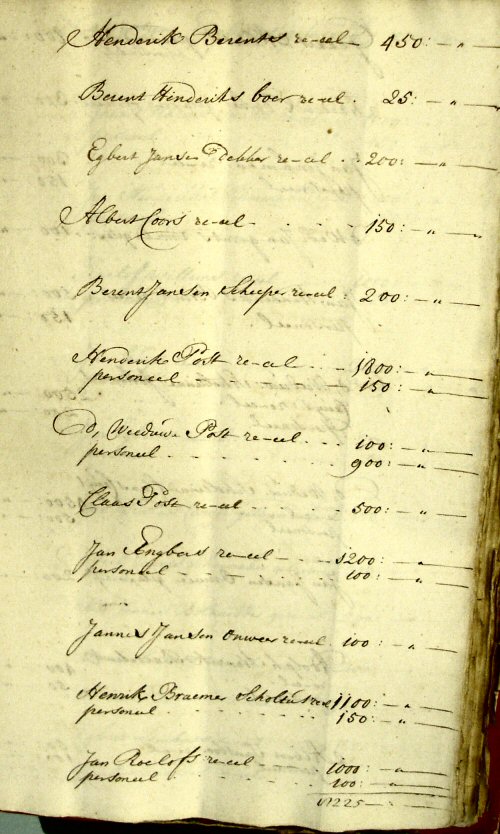 Henderik Berents re-eel 450:-"-
Berent Hinderiks boer re-eel. 25:-"-
Egbert Jansen Dekker re-eel .. 200:-"-
Albert Coors re-eel - . . . . 150:-"-
Berent Jansen Scheper re-eel: 200:-"-
Henderik Post re-eel . . - 1800:-"-
personeel - . . . . . - 150:-"-
D, Weeduwe Post re-eel . . . 100:-"-
personeel - . . . . . . 900:-"-
Claas Post re-eel . . . . 500:-"-
Jan Engbers re-eel . . . 1200:-"-
personeel . . . . . . 100:-"-
Jannes Jansen Onweer re-eel. 100:-"-
Henrik Braemer Scholtus re-el 1100:-"-
personeel - . . . . . . 150:-"-
Jan Roelofs re-eel . . . . 1000:-"-
personeel . . . . . . . 200:-"-